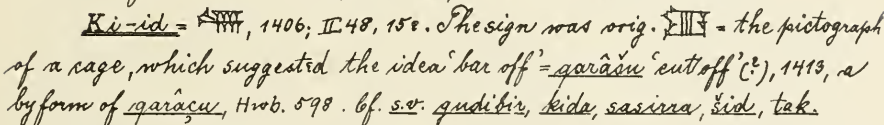 Ki-id = 𒆤, 1406; II 48, 15e. The sign was orig. = the pictograph
of a cage, which suggested the idea 'bar off' = qarâšu 'cut off' (?), 1413, a
byform of qarâçu, Hwb. 598. Cf. s.v. gudibir, kida, sasirra, šid, tak.